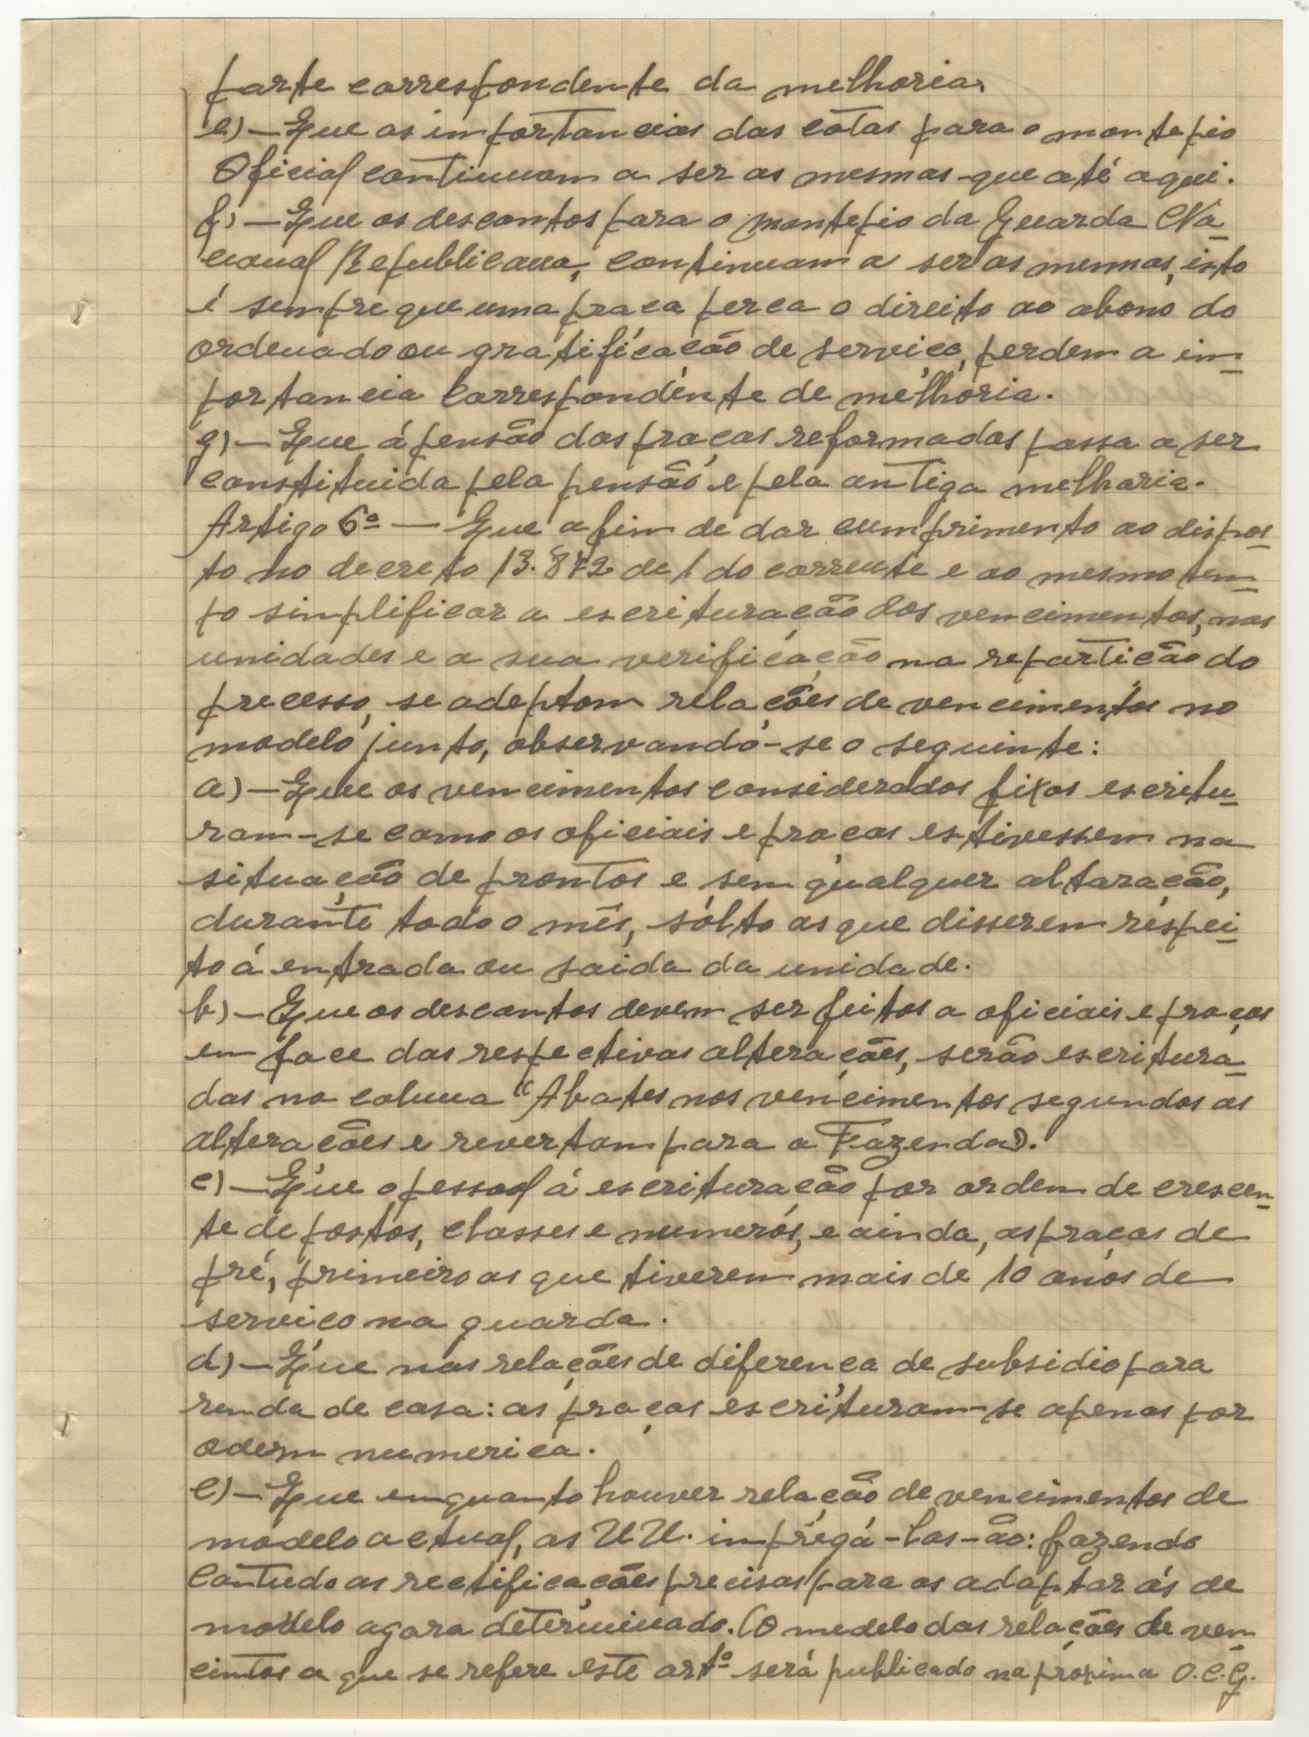 parte correspondente da melhoria.
e) — Que as importancias das cotas para o montepio
Oficial continuam a ser as mesmas que até aqui.
f) — Que os descontos para o montepio da Guarda Na-
cional Republicana, continuam a ser as mesmas, isto
é sempre que uma praça perca o direito ao abono do
ordenado ou gratificação de serviço, perdem a im-
portancia correspondente de melhoria.
g) — Que á pensão das praças reformadas passa a ser
constituida pela pensão e pela antiga melhoria.
Artigo 6º — Que a fim de dar cumprimento ao dispos-
to no decreto 13.872 de 1 do corrente e ao mesmo tem-
po simplificar a escrituração dos vencimentos, nas
unidades e a sua verificação na repartição do
processo, se adoptam relações de vencimentos no
modelo junto, observando-se o seguinte:
a) — Que os vencimentos considerados fixos escritu-
ram-se como os oficiais e praças estivessem na
situação de prontos e sem qualquer altaração,
durante todo o mês, sólto as que disserem respei-
to á entrada ou saida da unidade.
b) — Que os descontos devem ser feitos a oficiais e praças
em face das respectivas alterações, serão escritura-
das na coluna "Abates nos vencimentos segundos as
alterações e revertam para a Fazenda".
c) — Que o pessoal á escrituração por ordem de crescen-
te de postos, classes e numerós, e ainda, as praças de
pré, primeiro as que tiverem mais de 10 anos de
serviço na guarda.
d) — Que nas relações de diferença de subsidio para
renda de casa: as praças escrituram-se apenas por
odem numerica.
e) — Que emquanto houver relação de vencimentos de
modelo actual, as UU. impregá-las-ão: fazendo
contudo as rectificações precisas para as adaptar ás de
modelo agora determinado. (O modelo das relações de ven-
cimtos a que se refere este artº será publicado na próxima O.C.G.